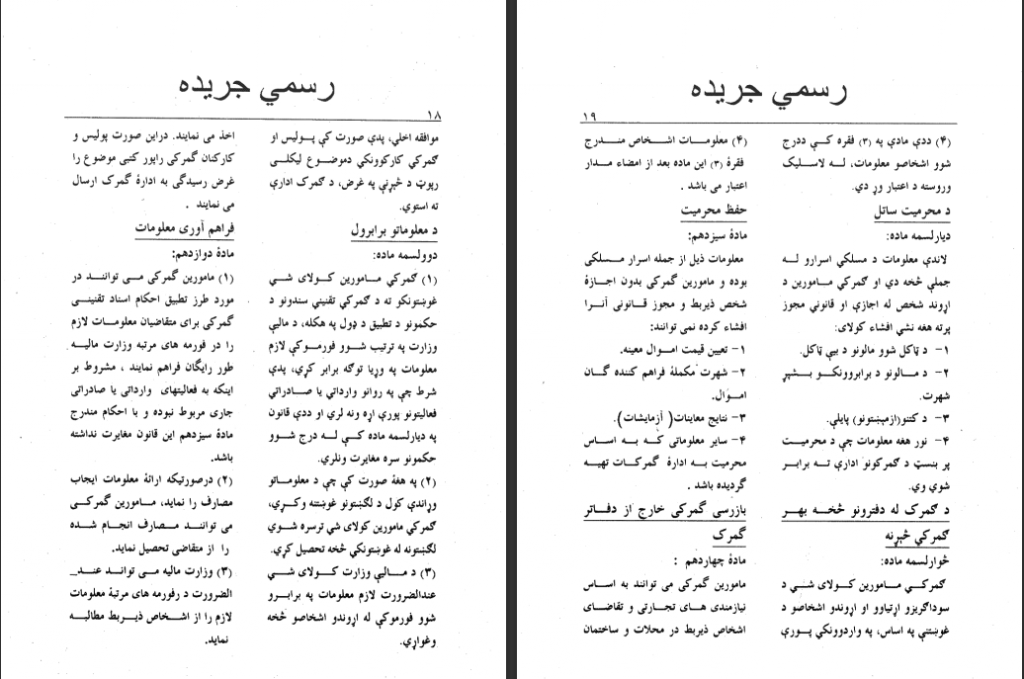 رسمي جريده
۱۸
موافقه اخلي، پدې صورت کې پــوليس او
ګمرکي کارکوونکي دموضـوع ليکلی
رپوټ د څېړنې په غرض، د ګمرک ادارې
ته استوي.
د معلوماتو برابرول
دوولسمه ماده:
(۱) ګمرکي مــامورين کـولای شــي
غوښتونکو ته د ګمرکي تقنيني سندونو د
حکمونو د تطبيق د ډول په هکله، د ماليې
وزارت په ترتيب شــوو فورموکې لازم
معلومات په وړيا توګه برابر کړي، پدې
شرط چې په روانو وارداتي يا صــادراتي
فعاليتونو پورې اړه ونه لري او ددې قانون
په ديارلسمه ماده کــې لــه درج شــوو
حکمونو سره مغايرت ونلري.
(۲) په هغۀ صورت کې چې د معلومـاتو
وړاندې کول د لګښتونو غوښتنه وکــړي،
ګمرکي مامورين کولای شي ترسره شوي
لګښتونه له غوښتونکي څخه تحصيل کړي.
(۳) د مــاليې وزارت کــولای شــي
عندالضرورت لازم معلومات په برابـرو
شوو فورموکې له اړوندو اشخاصو څخه
وغواړي.
اخذ می نمايند. دراين صورت پوليس و
کارکنان گمرکی راپور کتبی موضوع را
غرض رسيدگی به ادارۀ گمرک ارسال
می نمايند .
فراهم آوری معلومات
مادۀ دوازدهم:
(۱) مامورين گمرکی مــی تواننــد در
مورد طرز تطبيق احکام اسناد تقنينــی
گمرکی برای متقاضيان معلومـات لازم
را در فورمه های مرتبه وزارت ماليــه
طور رايگان فراهم نمايند ، مشروط بر
اينکه به فعاليتهای وارداتی يا صادراتی
جاری مربوط نبوده و با احکام مندرج
مادۀ سيزدهم اين قانون مغايرت نداشته
باشد.
(۲) درصورتيکه ارائۀ معلومات ايجاب
مصارف را نمايد، مــامورين گمرکــی
می تواننــد مصــارف انجــام شده
را از متقاضی تحصيل نمايد.
(۳) وزارت ماليه مــی توانــد عنــد_
الضرورت د رفورمه های مرتبۀ معلومات
لازم را از اشخاص ذيــربط مطالبــه
نمايد.
رسمي جريده
۱۹
(۴) ددې مادې په (۳) فقره کــې ددرج
شوو اشخاصو معلومات، لــه لاســليک
وروسته د اعتبار وړ دي.
د محرميت ساتل
ديارلسمه ماده:
لاندې معلومات د مسلکي اسرارو لــه
جملې څخه دي او ګمرکي مــامورين د
اړوند شخص له اجازې او قانوني مجوز
پرته هغه نشي افشاء کولای:
۱- د ټاکل شوو مالونو د بيې ټاکل.
۲- د مــالونو د برابروونکــو بــشپړ
شهرت.
۳- د کتنو(ازمېښتونو) پايلې.
۴- نور هغه معلومات چې د محرميت
پر بنسټ د ګمرکونو ادارې تــه برابـر
شوي وي.
د ګمرک له دفترونو څخــه بهــر
ګمرکي څېړنه
څوارلسمه ماده:
ګمرکــي مــامورين کــولای شــي د
سوداګريزو اړتياوو او اړوندو اشخاصو د
غوښتنې په اساس، په واردوونکي پــورې
(۴) معلومــات اشــخاص منــدرج
فقرۀ (۳) اين ماده بعد از امضاء مــدار
اعتبار می باشد .
حفظ محرميت
مادۀ سيزدهم:
معلومات ذيل از جمله اسرار مــسلکی
بوده و مامورين گمرکی بدون اجــازۀ
شخص ذيربط و مجوز قــانونی آنــرا
افشاء کرده نمی توانند:
۱- تعيين قيمت امــوال معينه.
۲- شهرت مکملۀ فراهم کننده گــان
امــوال.
۳- نتايج معاينات( آزمايشات).
۴- ساير معلوماتی کــه بــه اســاس
محرميت بــه ادارۀ گمرکــات تهيــه
گرديده باشد .
بازرسی گمرکی خارج از دفــاتر
گمرک
مادۀ چهاردهم :
مامورين گمرکی می توانند به اساس
نيازمندی های تجارتی و تقاضای
اشخاص ذيربط در محلات و ساختمان